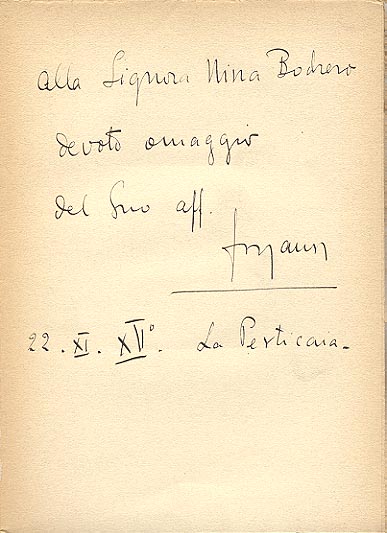 alla Signora Nina Bodrero
devoto omaggio
del Suo aff.
22. XI. XV°. La Perticaia.